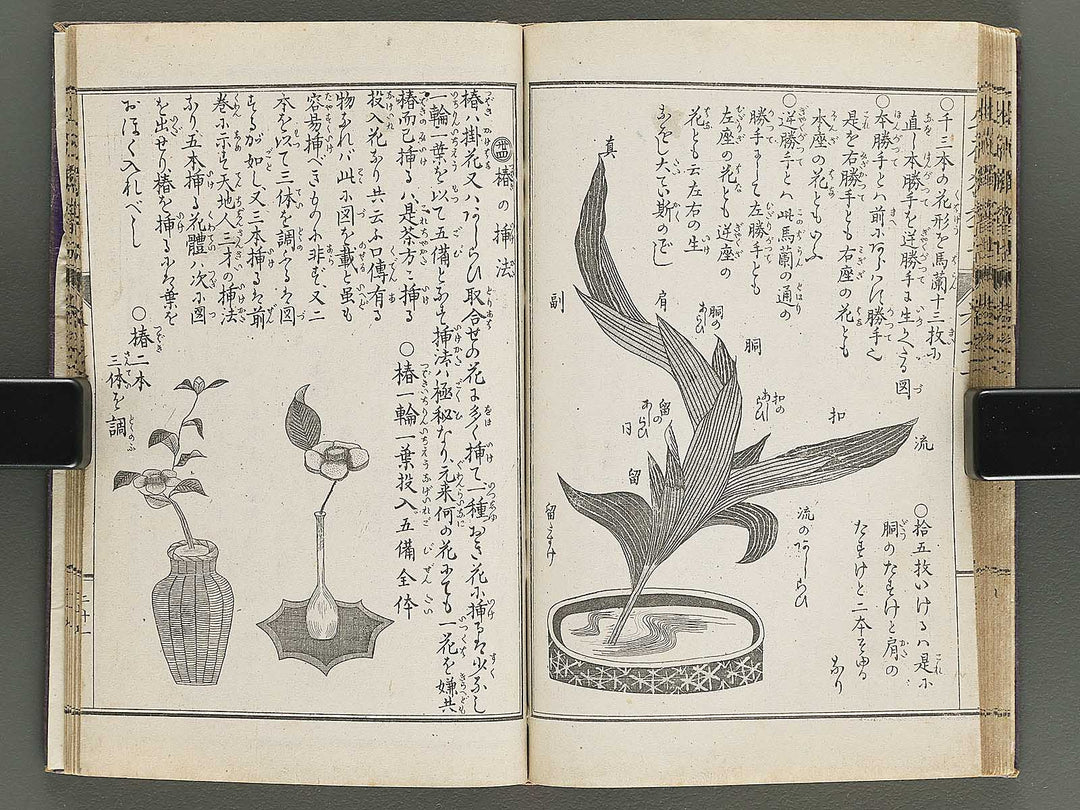 〇千三本の花形を馬蘭十三枚ニ
直し本勝手を逆勝手ニ生くる図
〇本勝手とハ前ニ
是を右勝手とも右座の花とも
本座の花ともいふ
〇逆勝手とハ此馬蘭の通の
勝手にして左勝手とも
左座の花とも逆座の
花とも云左右の生
真
副
肩
胴のあしらひ
胴
留のあしらひ
扣のあしらひ
扣
流
留
流のあしらひ
〇拾五枚いけるハ是ニ
胴のたすけと肩の
たすけと二本
なり
椿の挿法
椿ハ掛花又ハあしらひ取合せの花に多く挿て一種
一輪一葉を以て五備となす挿法ハ極秘なり元来何の花にても一花を嫌共
椿而已挿るハ是茶方ニ挿る
投入花なり共云ふ口傳有る
物なれバ此ニ図を載と虽も
容易挿べきものニ非ず又二
本を以て三体を調ふるハ図
するが如し又三本挿るハ前
巻ニ示す天地人三才の挿法
なり五本挿る花體ハ次ニ図
を出せり椿を挿るにハ葉を
おほく入れべし
〇椿一輪一葉投入五備全体
〇椿二本
三体を調